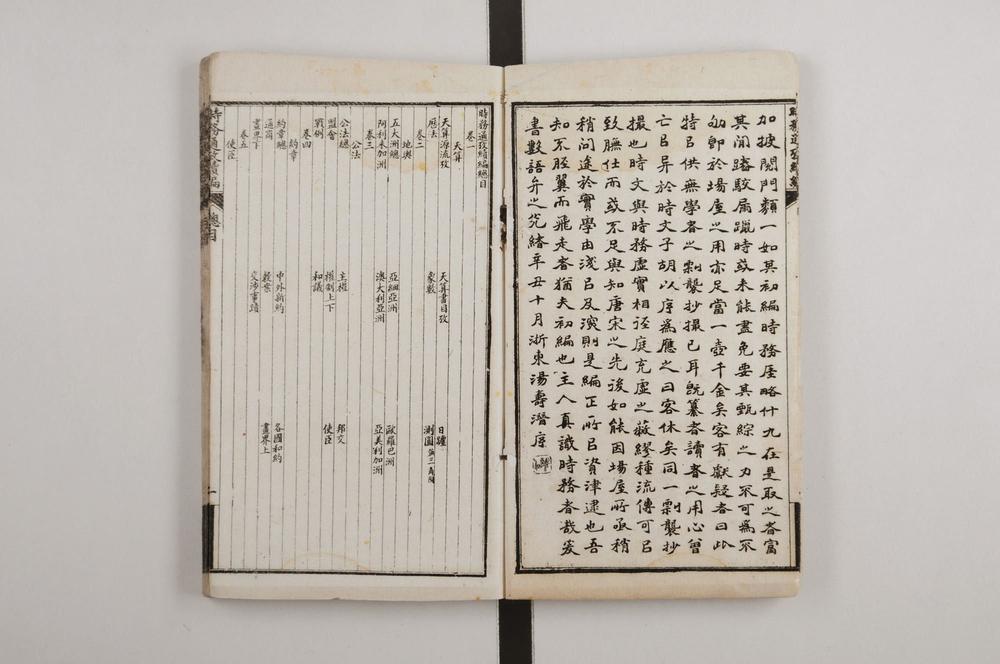 加披閱門類一如其初編時務厓略什九在是取之者富
其間踳駁屚躐時或未能盡免要其甄綜之力不可為不
勏卽於場屋之用亦足當一壺千金矣客有獻疑者曰此
特㠯供無學者之剽襲抄撮已耳旣纂者讀者之用心曾
亡㠯異於時文子胡以序爲應之曰客休矣同一剽襲抄
撮也時文與時務虛實相逕庭充虛之蔽繆種流傳可㠯
致膴仕而或不足與知唐宋之先後如能因場屋所亟稍
稍問途於實學由淺㠯及深則是編正所㠯資津逮也吾
知不脛翼而飛走者猶夫初編也主人眞識時務者哉爰
書數語弁之光緖辛丑十月浙東湯壽潛序
時務通攷續編總目
卷一
天算
天算源流攷 天算書目攷 日躔
曆法 象數 測圓
卷二
地輿
五大洲總 亞細亞洲 歐羅巴洲
阿利未加洲 澳大利亞洲 亞美利加洲
卷三
公法
公法總 主權 邦交
盟會 權制上下 使臣
戰例 和議
卷四
約章
約章總 中外新約 各國和約
通商 敎案 畫界上
畫界下 交涉事蹟
卷五
使臣
時務通攷續編 總目 一